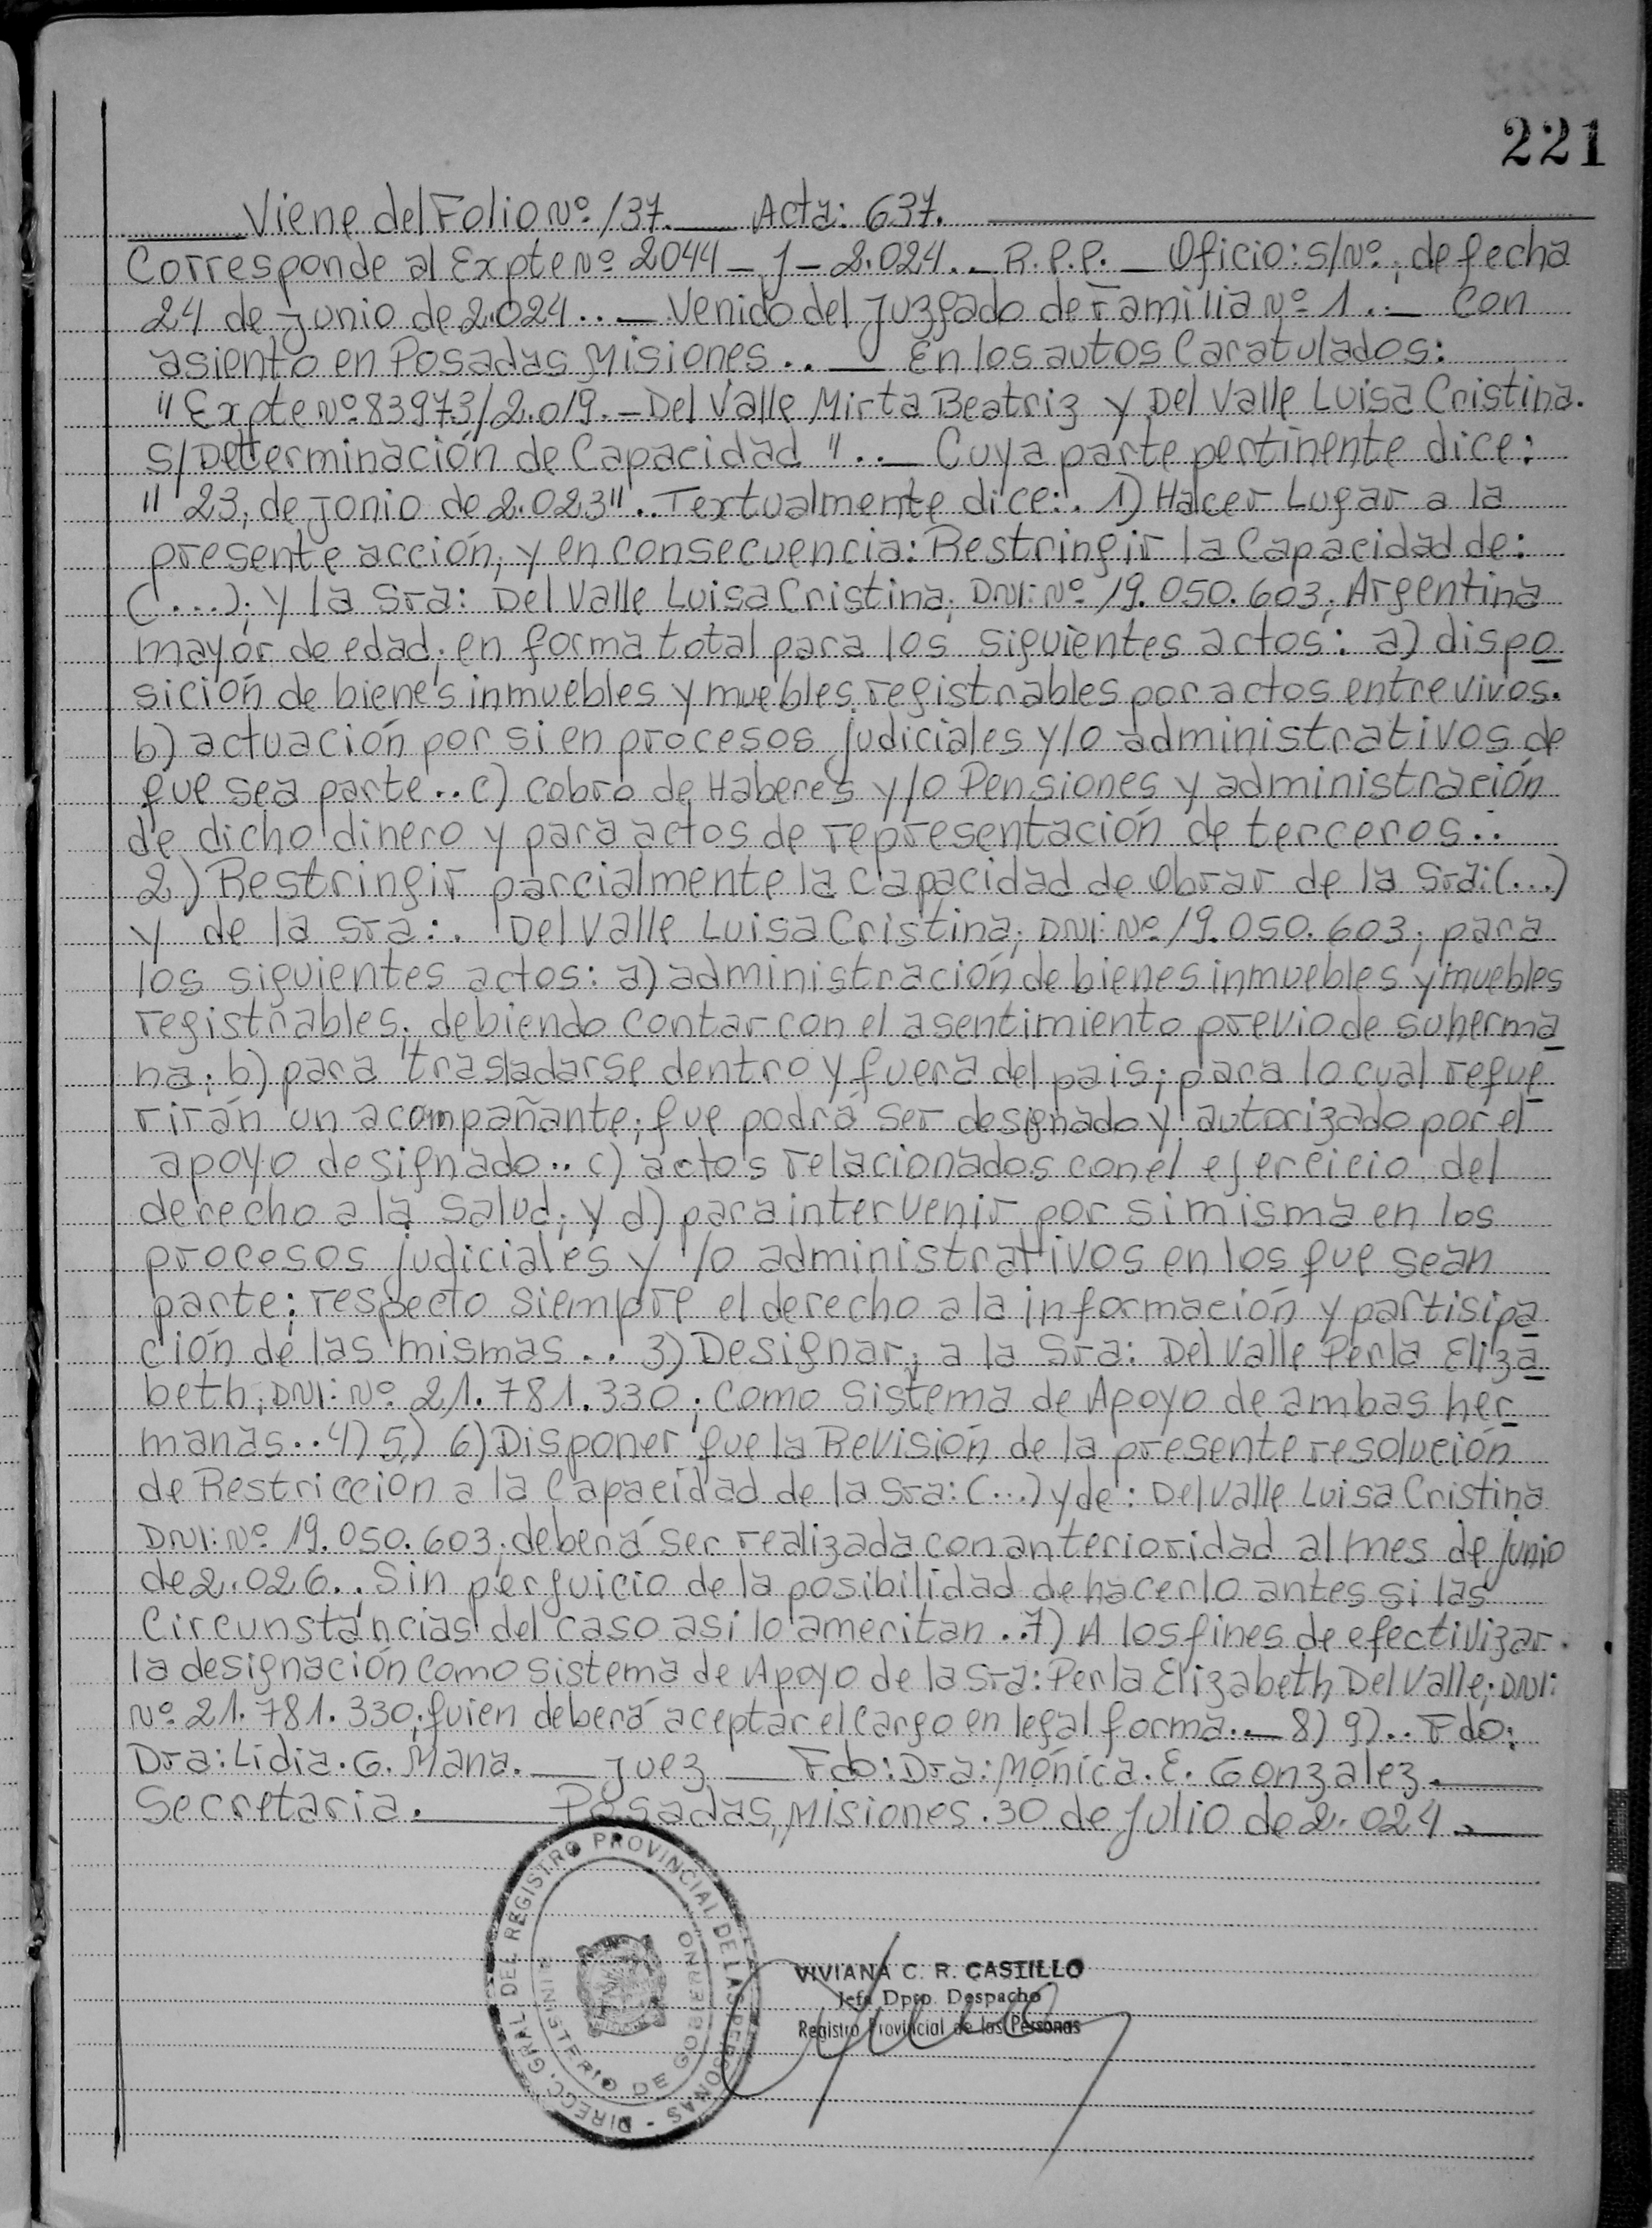 221
Viene del Folio Nº 137. Acta: 637.
Corresponde al Expte Nº 2044-J-2.024.. R.P.P. Oficio: S/Nº; de fecha
24 de Junio de 2.024... Venido del Juzgado de Familia Nº 1.. Con
asiento en Posadas Misiones... En los autos Caratulados:
"Expte Nº 83973/2.019.-Del Valle Mirta Beatriz y Del Valle Luisa Cristina.
S/Determinación de Capacidad".. Cuya parte pertinente dice:
"23, de Junio de 2.023".. Textualmente dice:. 1) Hacer Lugar a la
presente acción; y en consecuencia: Restringir la Capacidad de:
(...); y la Sra: Del Valle Luisa Cristina; DNI: Nº 19.050.603; Argentina
mayor de edad; en forma total para los siguientes actos: a) dispo
sición de bienes inmuebles y muebles registrables por actos entre vivos.
b) actuación por si en procesos judiciales y/o administrativos de
que sea parte.. c) cobro de Haberes y/o Pensiones y administración
de dicho dinero y para actos de representación de terceros..
2) Restringir parcialmente la capacidad de Obrar de la Sra: (...)
y de la Sra:. Del Valle Luisa Cristina; DNI: Nº 19.050.603; para
los siguientes actos: a) administración de bienes inmuebles y muebles
registrables; debiendo contar con el asentimiento previo de su herma
na; b) para trasladarse dentro y fuera del pais; para lo cual reque
rirán un acompañante; que podrá ser designado y autorizado por el
apoyo designado.. c) actos relacionados con el ejercicio del
derecho a la Salud; y d) para intervenir por si misma en los
procesos judiciales y /o administrativos en los que sean
parte; respecto siempre el derecho a la información y partisipa
ción de las mismas.. 3) Designar; a la Sra: Del Valle Perla Eliza
beth; DNI: Nº 21.781.330; Como Sistema de Apoyo de ambas her
manas.. 4) 5) 6) Disponer que la Revisión de la presente resolución
de Restricción a la Capacidad de la Sra: (...) y de: Del Valle Luisa Cristina
DNI: Nº 19.050.603; deberá ser realizada con anterioridad al mes de Junio
de 2.026.. Sin perjuicio de la posibilidad de hacerlo antes si las
Circunstancias del caso asi lo ameritan.. 7) A los fines de efectivizar.
la designación como sistema de Apoyo de la Sra: Perla Elizabeth Del Valle; DNI:
Nº 21.781.330; quien deberá aceptar el Cargo en legal forma.. 8) 9).. Fdo:
Dra: Lidia. G. Mana. Juez Fdo: Dra: Mónica. E. Gonzalez.
Secretaria. Posadas, Misiones. 30 de Julio de 2.024.
DIRECC. GRAL. DEL REGISTRO PROVINCIAL DE LAS PERSONAS -
MINISTERIO DE GOBIERNO
VIVIANA C. R. CASTILLO
Jefa Dpto. Despacho
Registro Provincial de las Personas